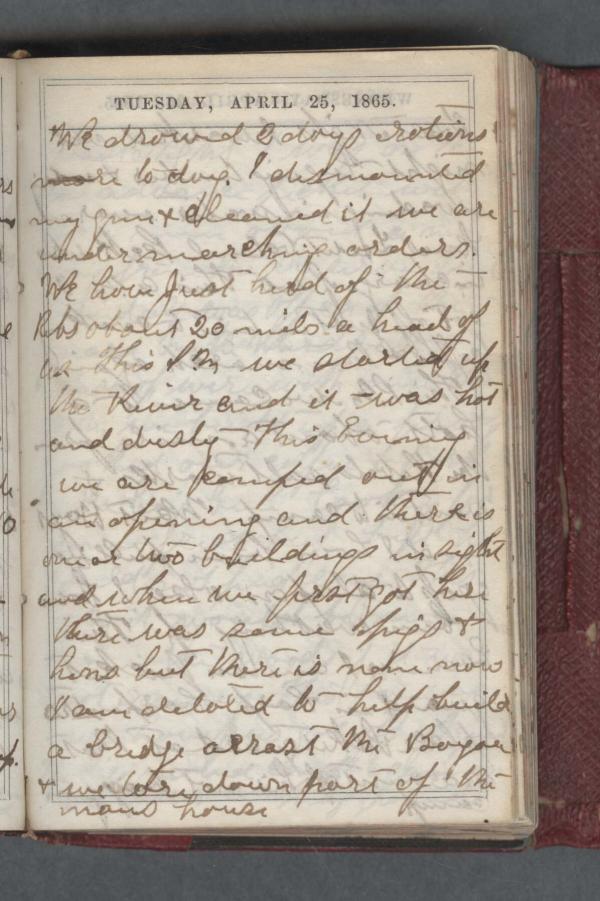 TUESDAY, APRIL 25, 1865.
We drowed 2 days rotions
more to day. I dismounted
my gun & cleanid it we are
under marching orders.
We have Just herd of the
Rbs about 20 mils a head of
us This P.M we started up
the River and it was hot
and dusty This Evening
we are camped out in
an opening and there is
one or two buildings in sight
and when we first got here
there was some pigs &
hens but there is none now
I am detoted to help build
a bridge acrast the Bayou
& we tore down part of the
mans house